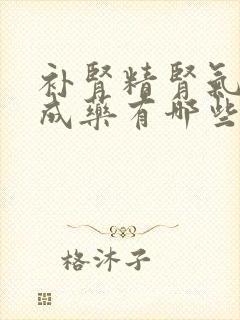 补肾精肾氣
成藥有哪些
格沐子